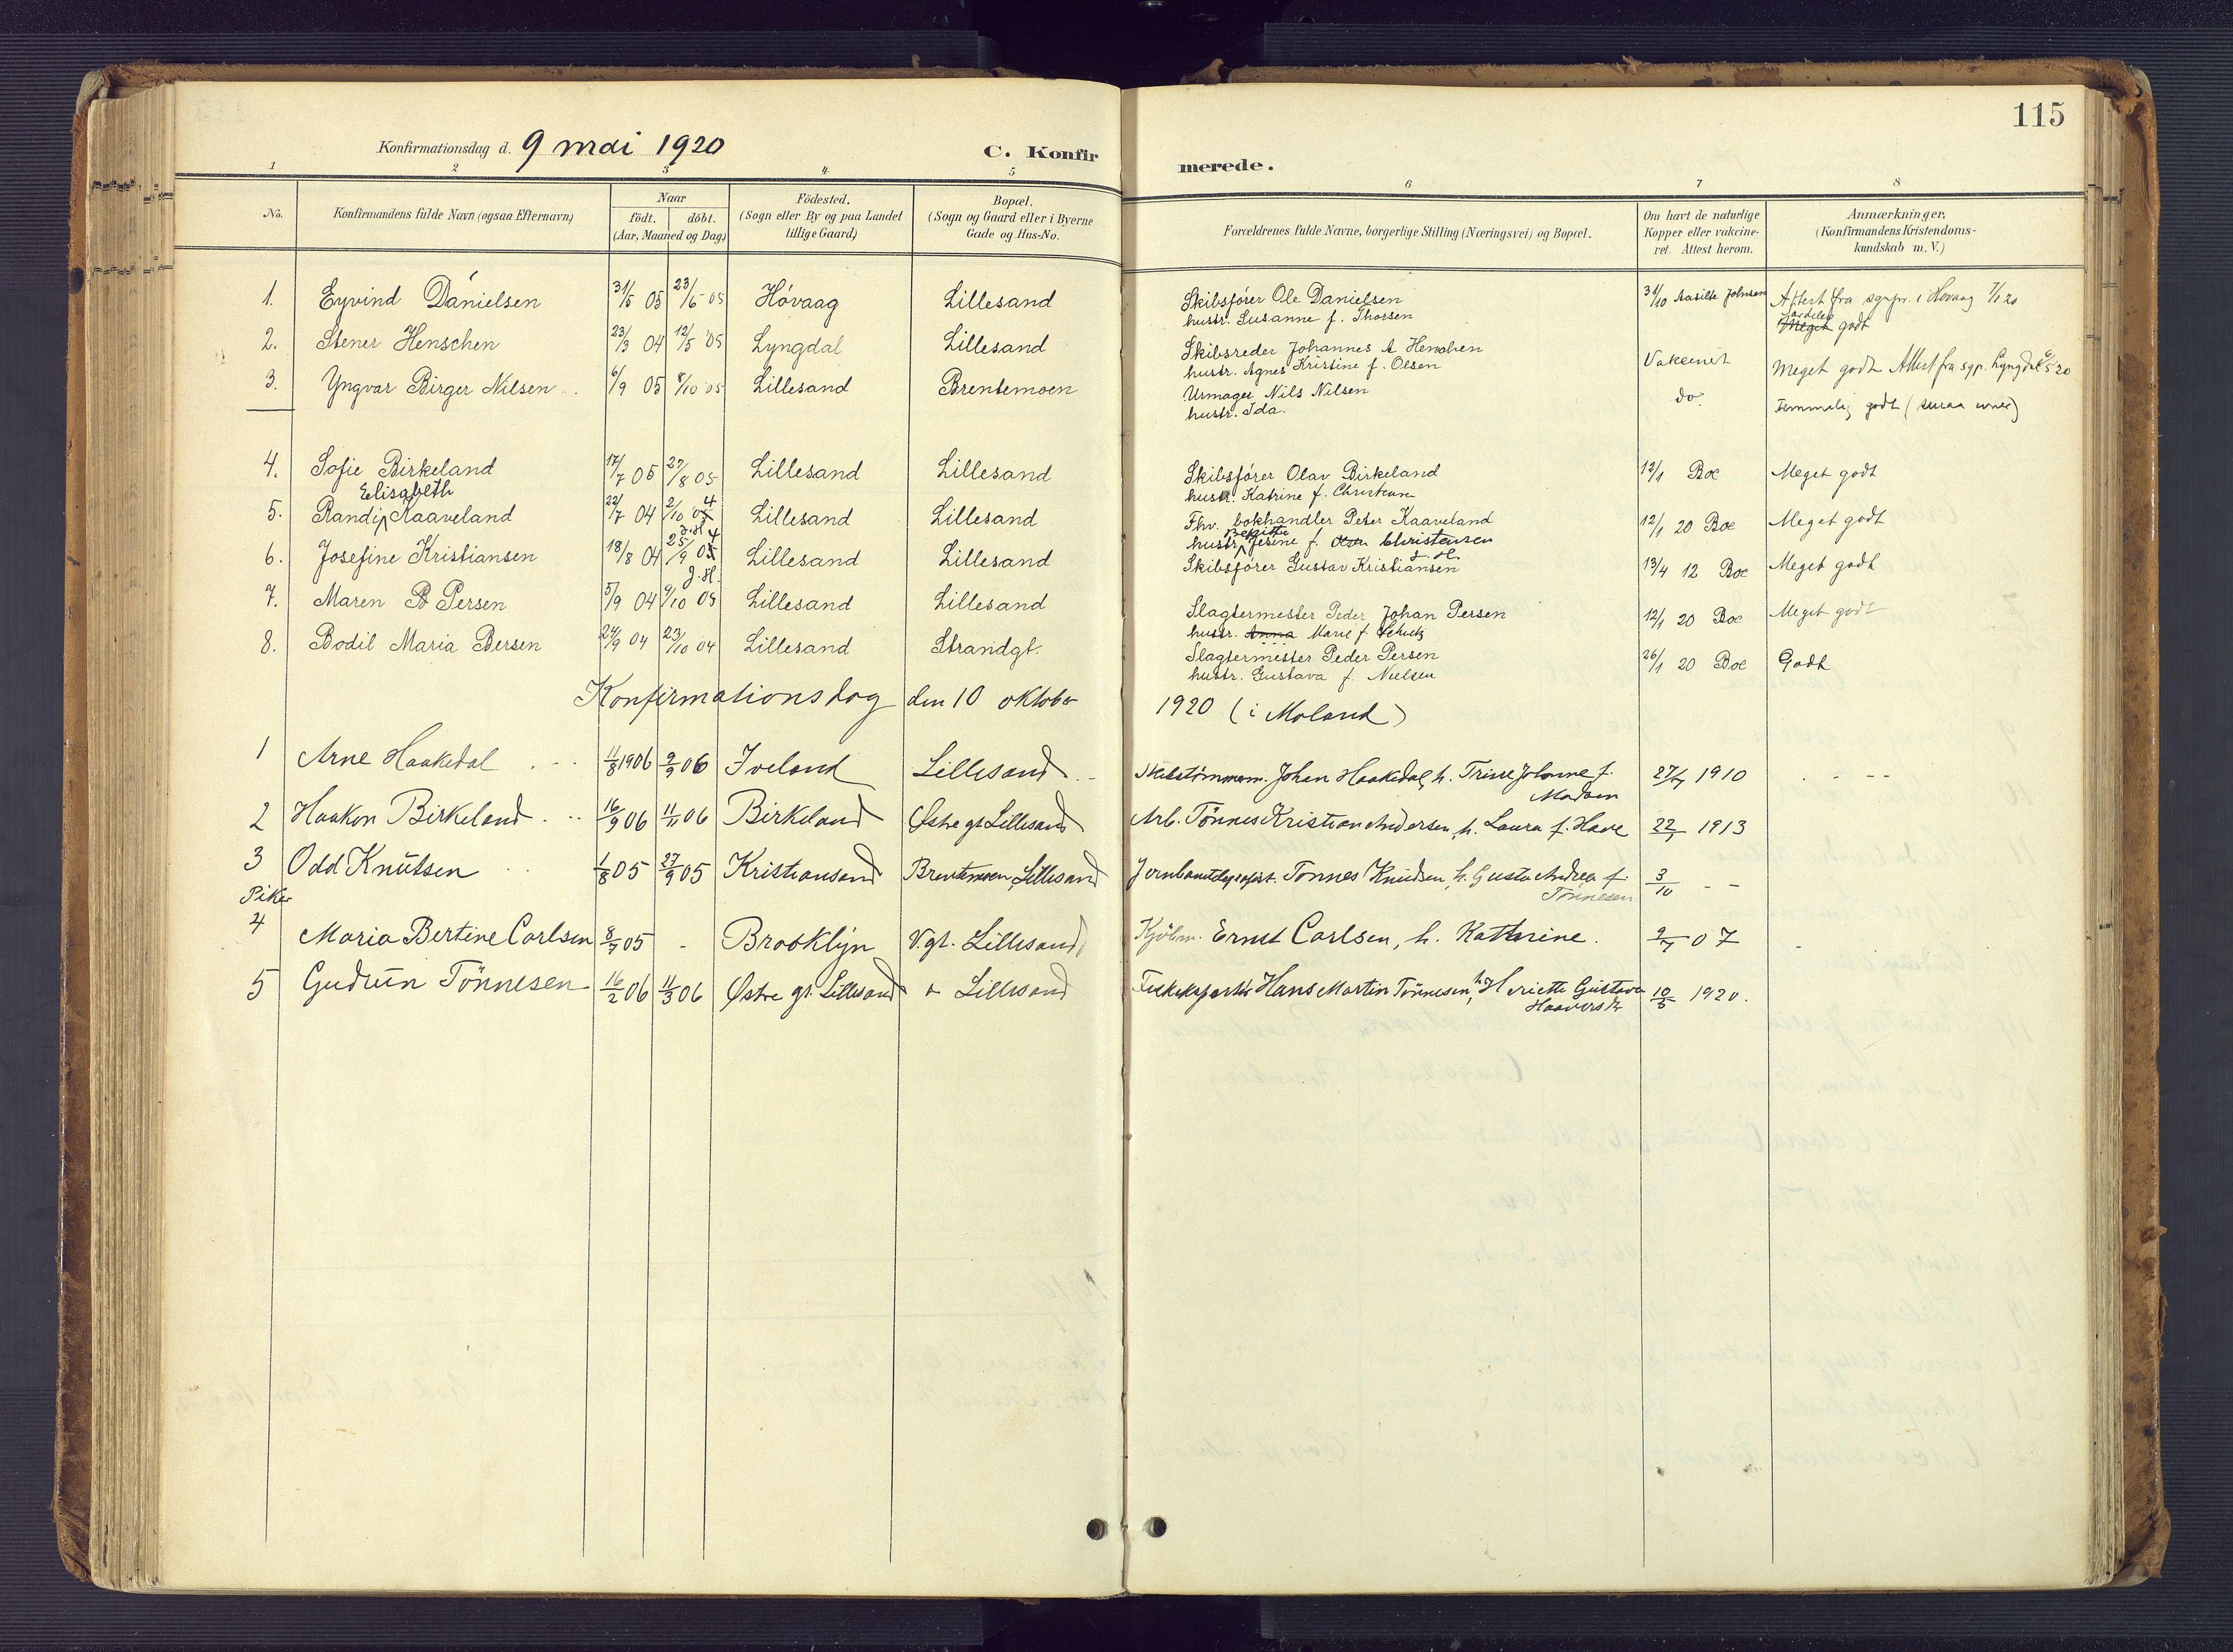 115
Konfirmationsdag d. 9 mai 1920
C. Konfirmerede.
1 2 3 4 5 6 7 8
No. Konfirmandens fulde Navn (ogsaa Efternavn) Naar födt. döbt. (Aar, Maaned og Dag) Födested. (Sogn eller By og paa Landet tillige Gaard) Bopæl. (Sogn og Gaard eller i Byerne Gade og Hus-No. Forældrenes fulde Navne, borgerlige Stilling (Næringsvei) og Bopæl. Om havt de naturlige Kopper eller vakcineret. Attest herom. Anmærkninger. (Konfirmandens Kristendomskundskab m. V.)
1. Eyvind Danielsen 31/5 05 23/6 05 Hóvaag Lillesand Skibsfører Ole Danielsen 31/10 Aasilde Johnsen Attest fra sgnpr. i Hovaag 7/1 20
hustr. Susanne f. Thorsen Meget godt
2. Stener Henschen 23/3 04 12/5 05 Lyngdal Lillesand Skibsreder Johannes A Henschen Vakcinert Meget godt Attest fra sgp. Lyngdal 6/5 20
hustr. Agnes Kristine f. Olsen
3. Yngvar Birger Nilsen 6/9 05 8/10 05 Lillesand Brentemoen Urmager Nils Nilsen do. Temmelig godt (smaa evner)
hustr. Ida.
4. Sofie Birkeland 17/7 05 27/8 05 Lillesand Lillesand Skibsfører Olav Birkeland 12/1 Boe Meget godt
hustr. Katrine f. Christensen
Elisabeth
5. Randi Kaaveland 22/7 04 2/10 04 Lillesand Lillesand Fhv. bokhandler Peter Kaaveland 12/1 20 Boe Meget godt
J. H.
hustr. Jesine f. Olsen Christensen
J. H.
6. Josefine Kristiansen 18/8 04 25/9 04 Lillesand Lillesand Skibsfører Gustav Kristiansen 13/4 12 Boe Meget godt
J. H.
7. Maren B Persen 5/9 04 9/10 04 Lillesand Lillesand Slagtermester Peder Johan Persen 12/1 20 Boe Meget godt
hustr. Anna Marie f.
8. Bodil Maria Bersen 24/9 04 23/10 04 Lillesand Strandgt. Slagtermester Peder Persen 26/1 20 Boe Godt
hustr. Gustava f. Nielsen
Konfirmationsdag den 10 oktober 1920 (i Moland)
1 Arne Haakedal 11/8 1906 9/9 06 Iveland Lillesand Johan Haakedal, h. Trine Johanne f. 27/7 1910
Madsen
2 Haakon Birkeland 16/9 06 11/11 06 Birkeland Østre gt. Lillesand Arb. Tönnes Kristian Andersen, h. Laura f. Have 22/1 1913
3 Odd Knutsen 1/8 05 27/9 05 Kristiansand Brentemoen, Lillesand Tönnes Knudsen, h. Gusta Andrea f. 3/10
Tönnesen
Piker
4 Maria Bertine Carlsen 8/7 05 - Brooklyn V. gt. Lillesand Kjöbm. Ernst Carlsen, h. Kathrine. 9/7 07
5 Gudrun Tönnesen 16/2 06 11/3 06 Østre gt. Lillesand Lillesand Hans Martin Tönnesen, h. Gustava 10/5 1920.